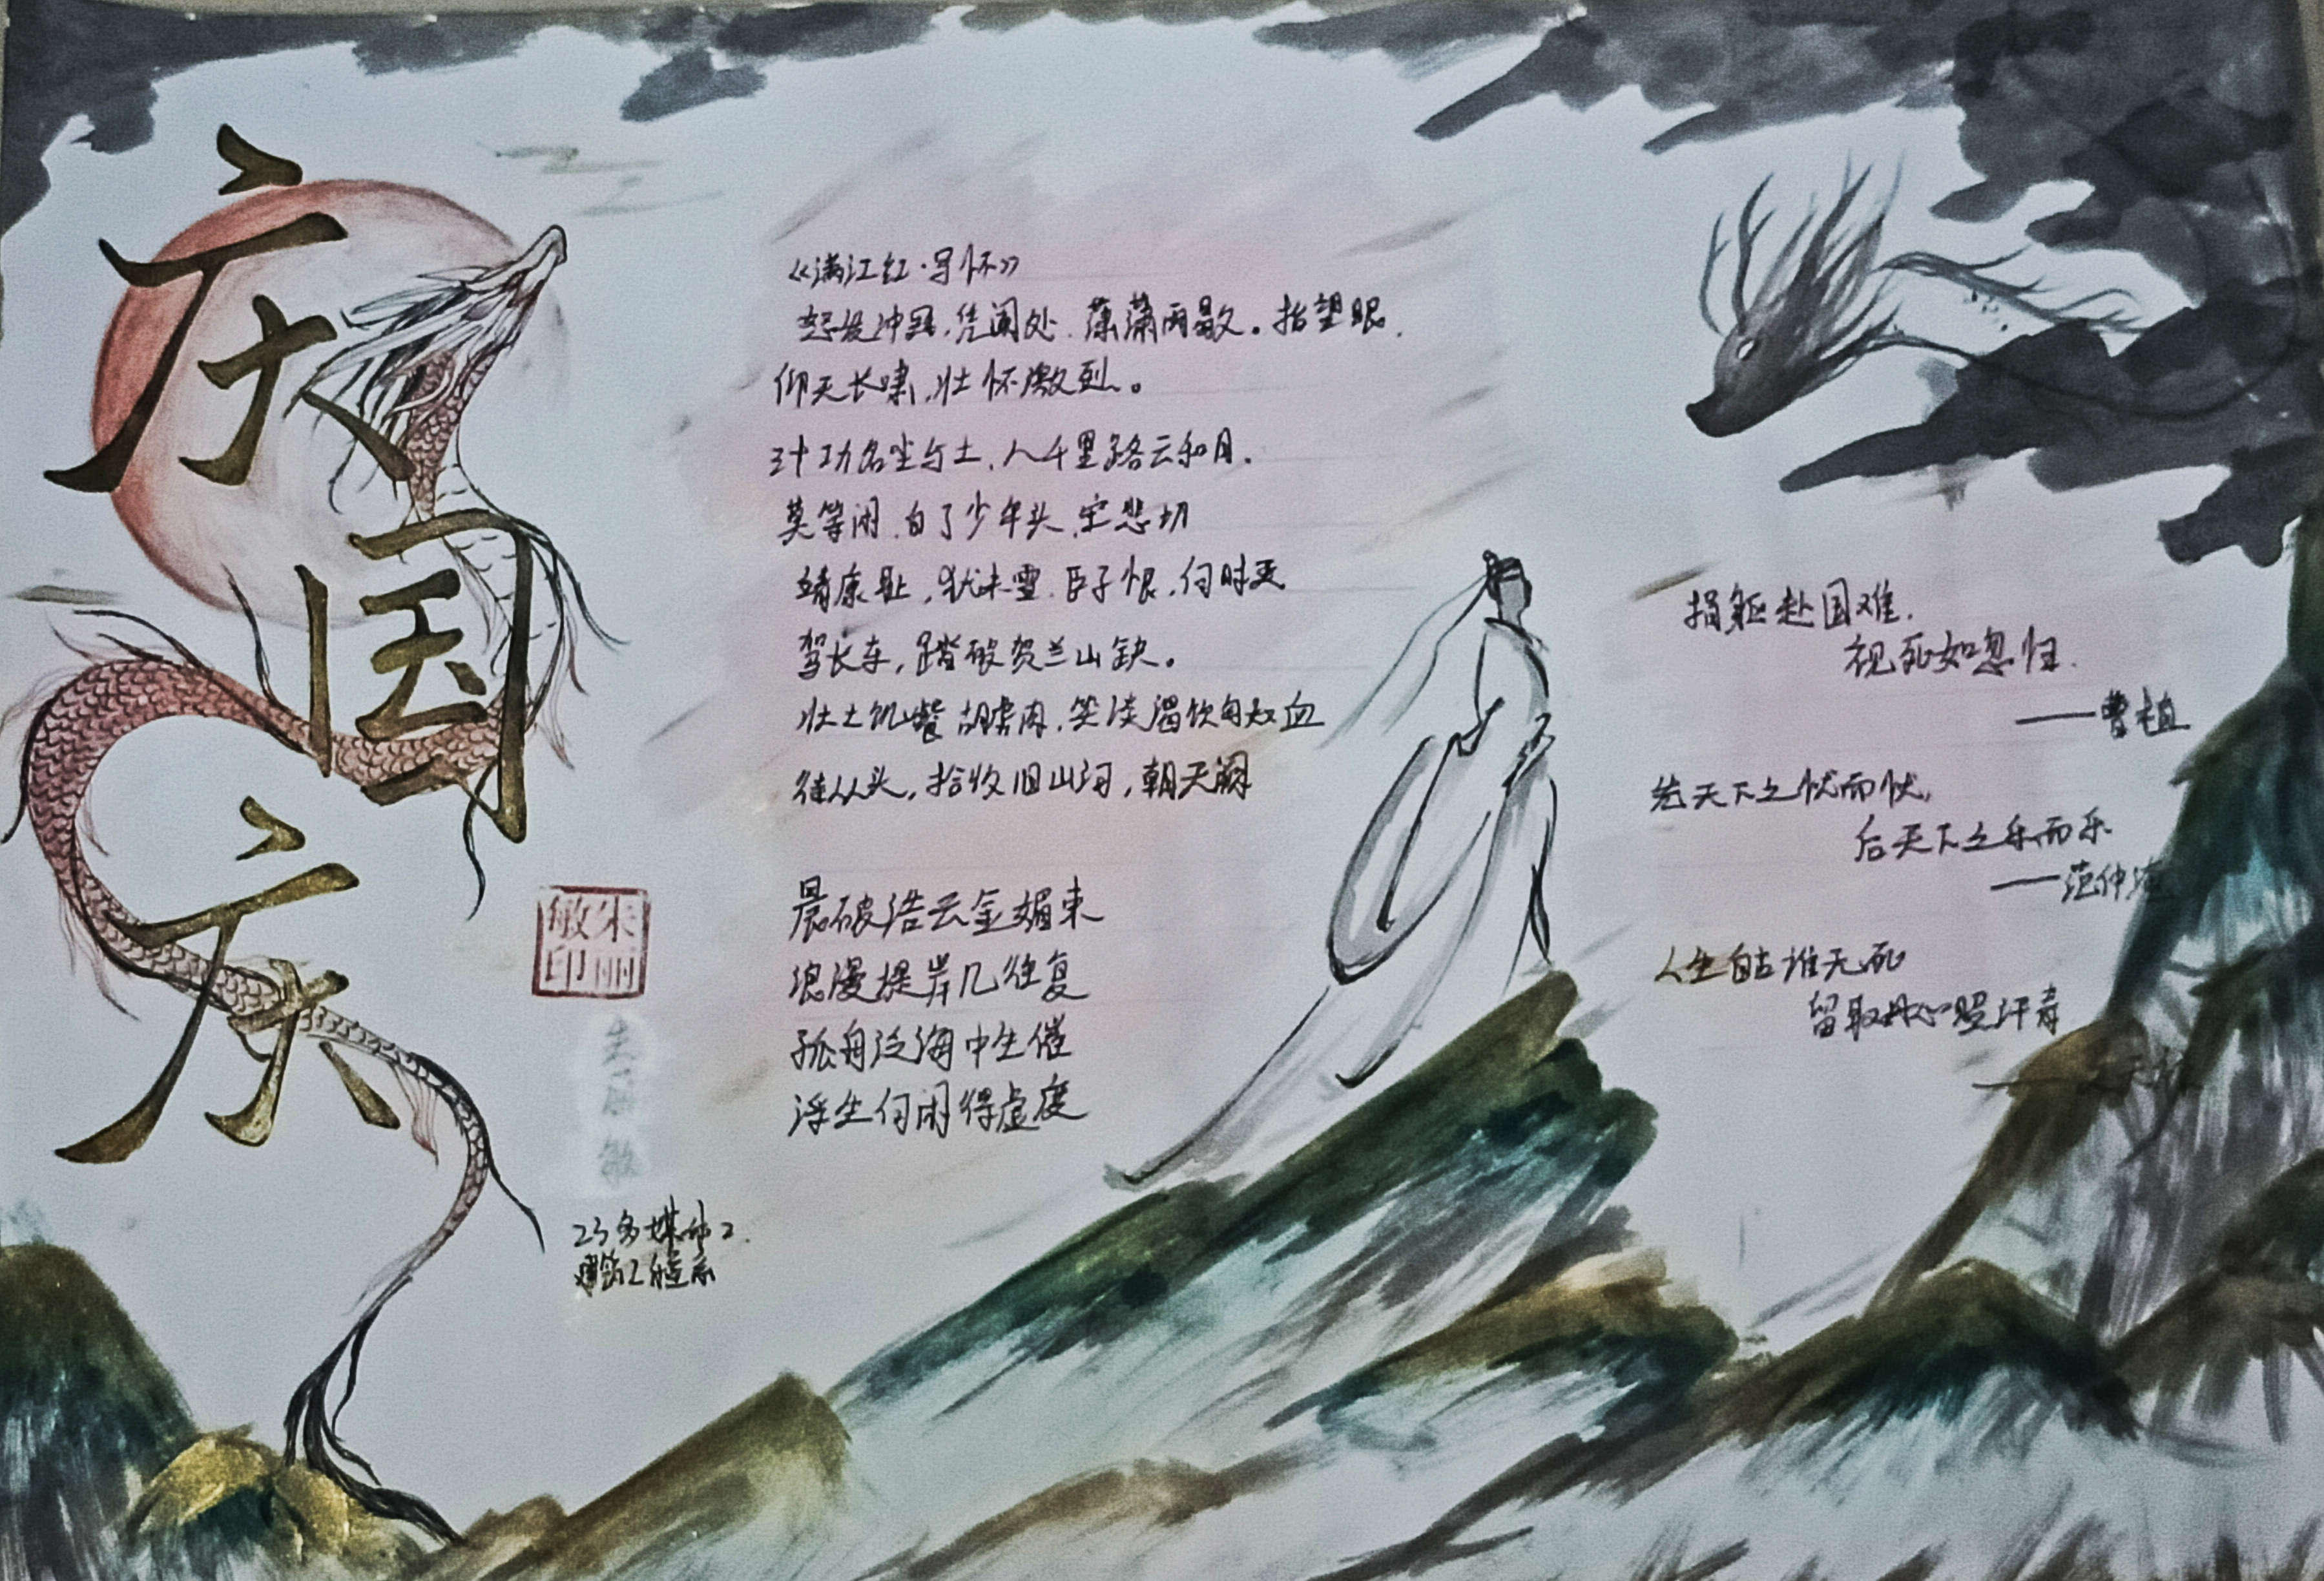 庆
国
庆
朱丽
敏印
23多媒体2
建筑工程系
《满江红·写怀》
怒发冲冠,凭阑处.潇潇雨歇。抬望眼.
仰天长啸,壮怀激烈。
三十功名尘与土,八千里路云和月.
莫等闲.白了少年头.空悲切
靖康耻,犹未雪.臣子恨,何时灭
驾长车,踏破贺兰山缺。
壮士饥餐胡虏肉.笑谈渴饮匈奴血
待从头,拾收旧山河,朝天阙
晨破浩云金媚束
浪漫堤岸几往复
孤舟泛海中生催
浮生何闲得虚度
捐躯赴国难.
视死如忽归.
——曹植
先天下之忧而忧,
后天下之乐而乐
——范仲淹
人生自古谁无死
留取丹心照汗青